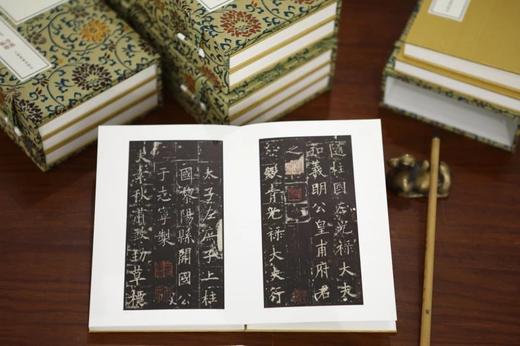 隨柱國左光祿大夫
弘義明公皇甫府君
之
銀青光祿大夫行
太子左庶子上柱
國黎陽縣開國公
于志寧製
夫素秋肅煞勁草標